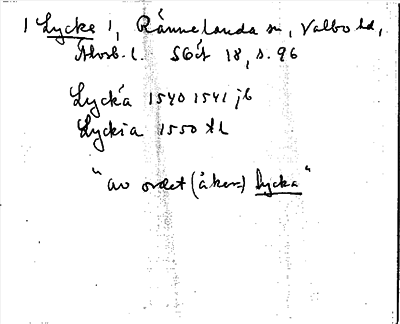 1 Lycke 1, Rännelanda sn, Valbo hd,
Älvsb. l. SGÄ 18, s. 96
Lyckä 1540 1541 jb
Lyckia 1550 tl
"av ordet (åker-) lycka"